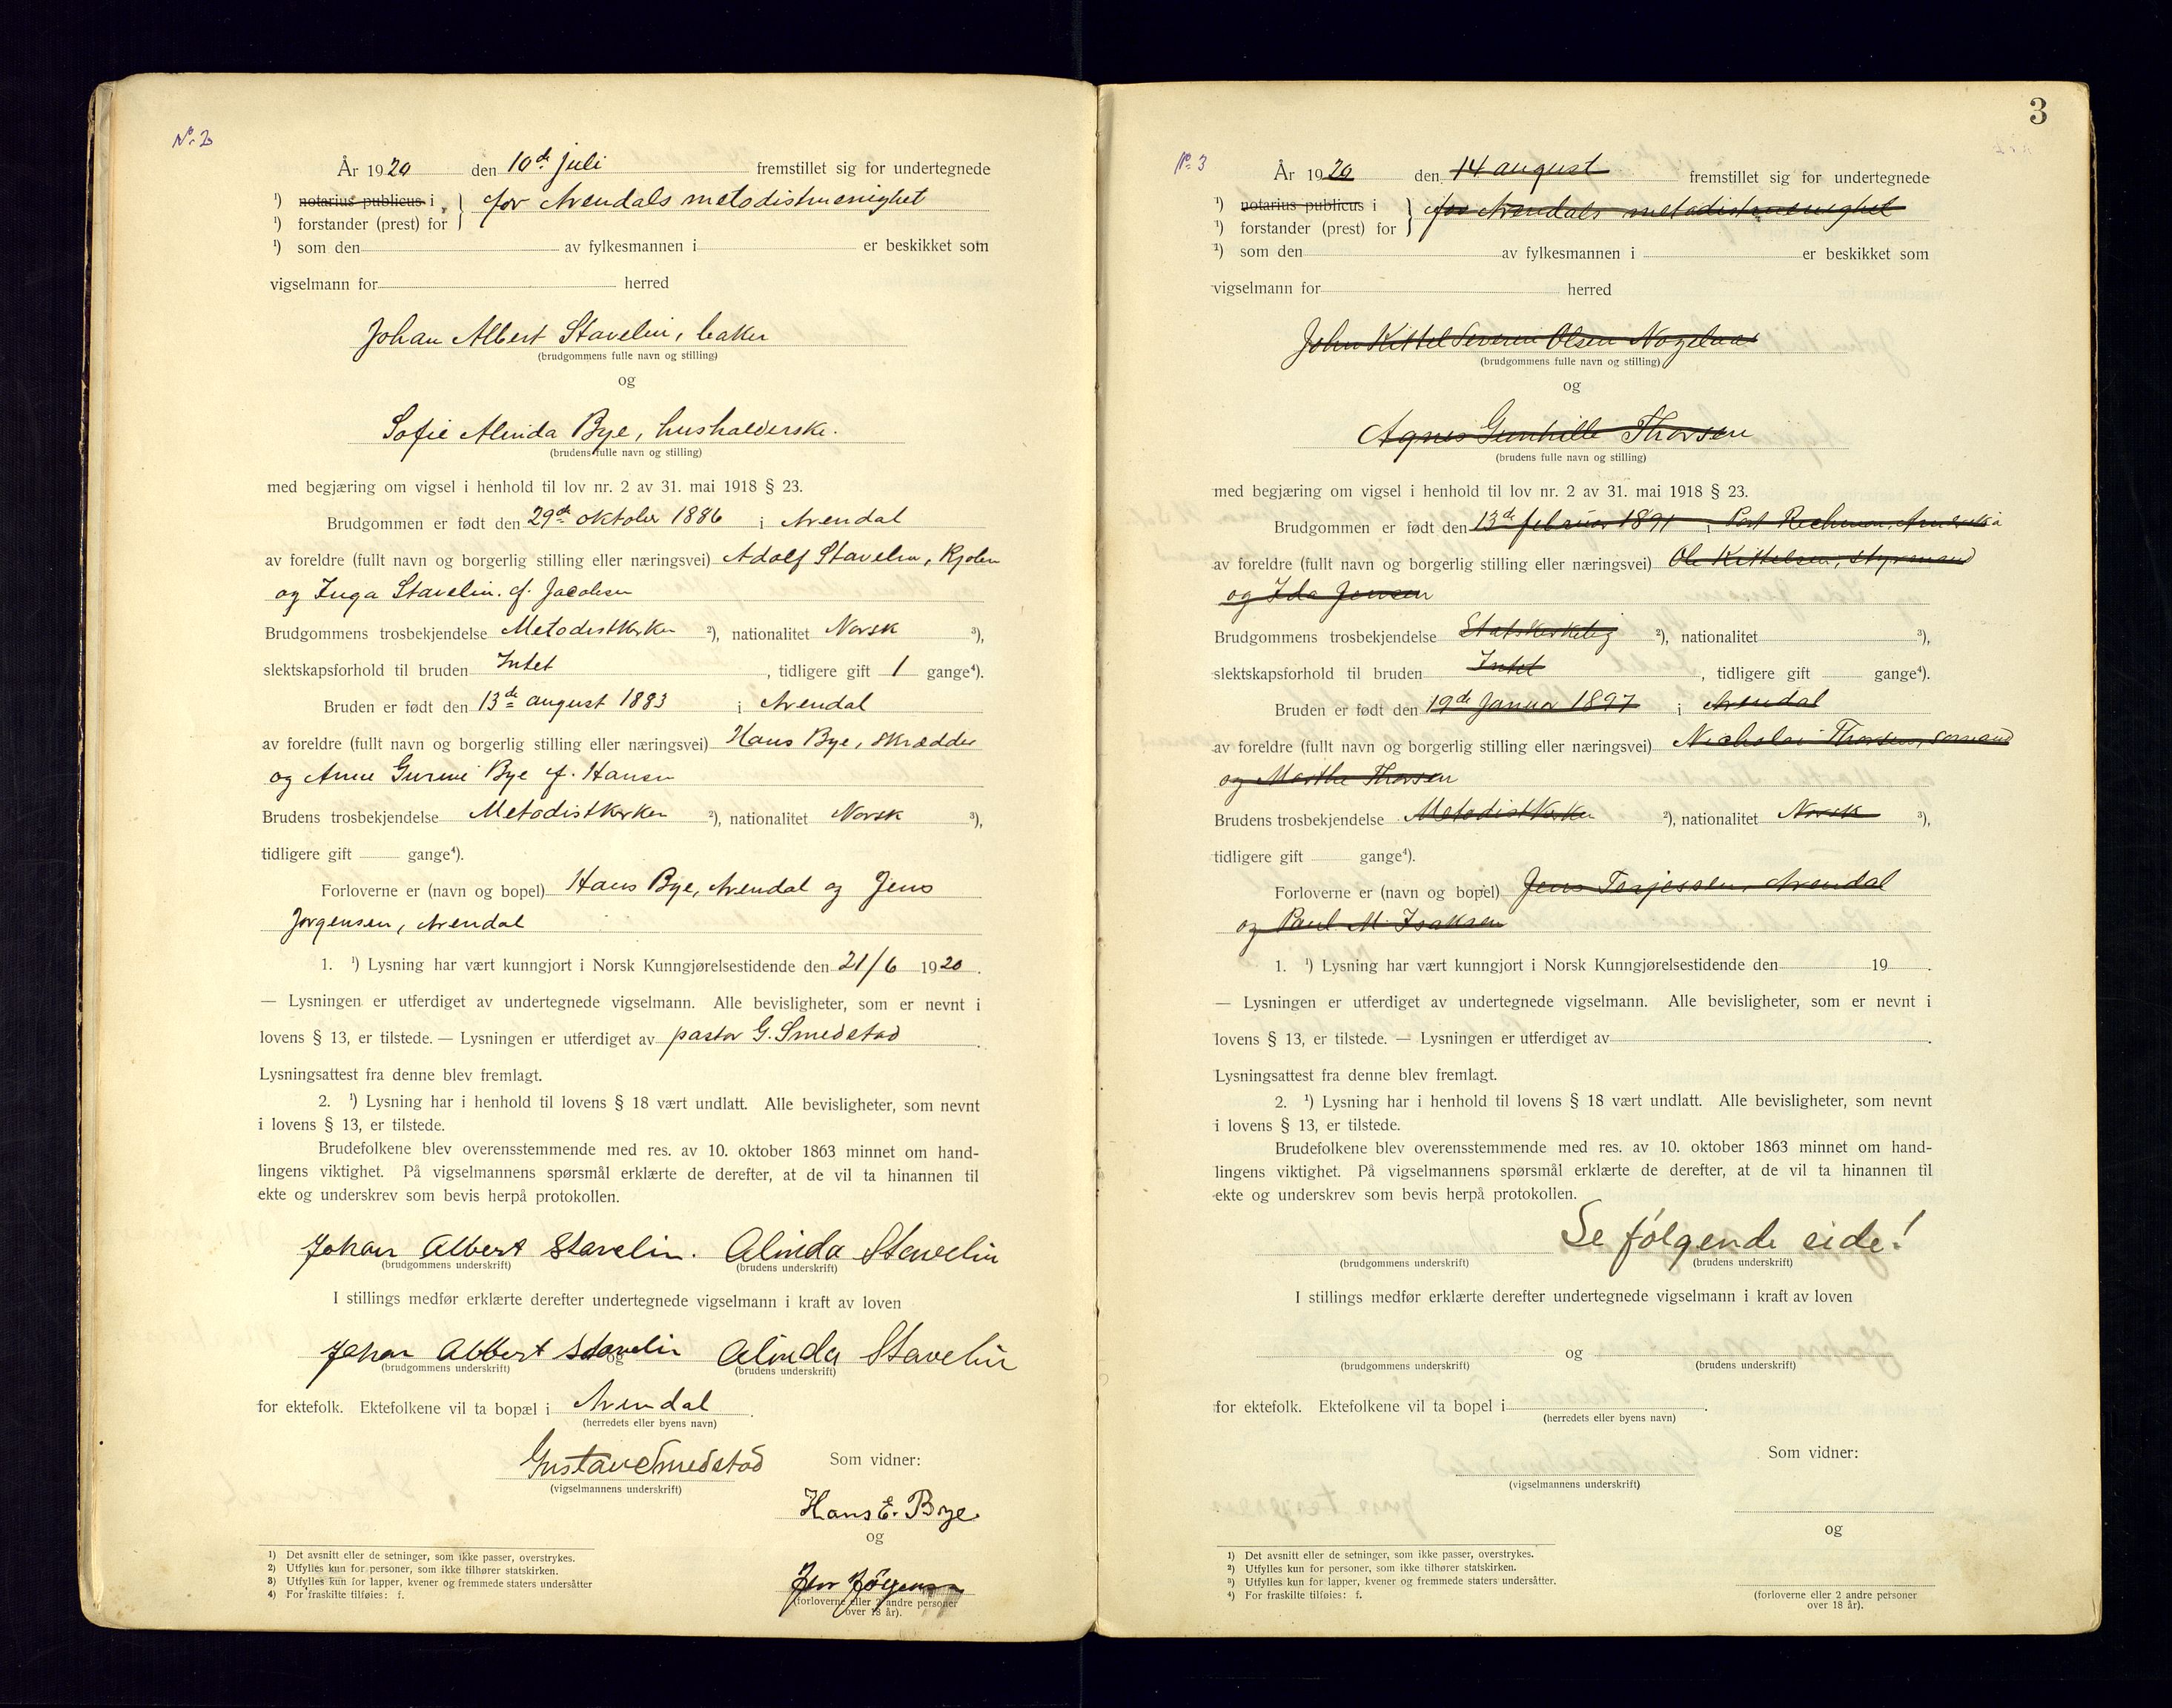 No. 2
År 1920 den 10de juli fremstillet sig for undertegnede
1) notarius publicus i
for Arendals metodistmenighet
1) forstander (prest) for
1) som den av fylkesmannen i er beskikket som
vigselmann for herred
Johan Albert Stavelin, baker
(brudgommens fulle navn og stilling)
og
Sofie Alinda Bye, husholderske.
(brudens fulle navn og stilling)
med begjæring om vigsel i henhold til lov nr. 2 av 31. mai 1918 § 23.
Brudgommen er født den 29de oktober 1886 i Arendal
av foreldre (fullt navn og borgerlig stilling eller næringsvei) Adolf Stavelin,
og Inga Stavelin. f. Jacobsen
Brudgommens trosbekjendelse Metodistkirken 2), nationalitet Norsk 3),
slektskapsforhold til bruden Intet , tidligere gift 1 gange4).
Bruden er født den 13de august 1883 i Arendal
av foreldre (fullt navn og borgerlig stilling eller næringsvei) Hans Bye, skrædder
og Anne Gurine Bye f. Hansen
Brudens trosbekjendelse Metodistkirken 2), nationalitet Norsk 3),
tidligere gift gange4).
Forloverne er (navn og bopel) Hans Bye, Arendal og Jens
Jørgensen, Arendal
1. 1) Lysning har vært kunngjort i Norsk Kunngjørelsestidende den 21/6 1920.
— Lysningen er utferdiget av undertegnede vigselmann. Alle bevisligheter, som er nevnt i
lovens § 13, er tilstede. — Lysningen er utferdiget av pastor G. Smedstad.
Lysningsattest fra denne blev fremlagt.
2. 1) Lysning har i henhold til lovens § 18 vært undlatt. Alle bevisligheter, som nevnt
i lovens § 13, er tilstede.
Brudefolkene blev overensstemmende med res. av 10. oktober 1863 minnet om hand-
lingens viktighet. På vigselmannens spørsmål erklærte de derefter, at de vil ta hinannen til
ekte og underskrev som bevis herpå protokollen.
Johan Albert Stavelin. Alinda Stavelin
(brudgommens underskrift) (brudens underskrift)
I stillings medfør erklærte derefter undertegnede vigselmann i kraft av loven
Johan Albert Stavelin og Alinda Stavelin
(brudgommens underskrift) (brudens underskrift)
for ektefolk. Ektefolkene vil ta bopæl i Arendal.
(herredets eller byens navn)
Gustav Smedstad
(vigselmannens underskrift)
Som vidner:
Hans E. Bye.
og
Jens Jörgensen
(forloverne eller 2 andre personer
over 18 år).
1) Det avsnitt eller de setninger, som ikke passer, overstrykes.
2) Utfylles kun for personer, som ikke tilhører statskirken.
3) Utfylles kun for lapper, kvener og fremmede staters undersåtter
4) For fraskilte tilføies: f.
3
No. 3
År 1920 den 14 august fremstillet sig for undertegnede
1) notarius publicus i
for Arendals metodistmenighet
1) forstander (prest) for
1) som den av fylkesmannen i er beskikket som
vigselmann for herred
John Kittel Severin Olsen
(brudgommens fulle navn og stilling)
og
Agnes Gunhille Thorsen
(brudens fulle navn og stilling)
med begjæring om vigsel i henhold til lov nr. 2 av 31. mai 1918 § 23.
Brudgommen er født den 13de februar 1891 i Port
av foreldre (fullt navn og borgerlig stilling eller næringsvei) Ole Kittelsen, styrmand
og Ida Jensen
Brudgommens trosbekjendelse Statskirkelig 2), nationalitet 3),
slektskapsforhold til bruden Intet , tidligere gift gange4).
Bruden er født den 19de Januar 1897 i Arendal
av foreldre (fullt navn og borgerlig stilling eller næringsvei) Nicholai Thorsen, sømand
og Marthe Thorsen
Brudens trosbekjendelse Metodistkirken 2), nationalitet Norsk 3),
tidligere gift gange4).
Forloverne er (navn og bopel) Jens Terjessen, Arendal
og Paul M. Isaksen
1. 1) Lysning har vært kunngjort i Norsk Kunngjørelsestidende den 19 .
— Lysningen er utferdiget av undertegnede vigselmann. Alle bevisligheter, som er nevnt i
lovens § 13, er tilstede. — Lysningen er utferdiget av .
Lysningsattest fra denne blev fremlagt.
2. 1) Lysning har i henhold til lovens § 18 vært undlatt. Alle bevisligheter, som nevnt
i lovens § 13, er tilstede.
Brudefolkene blev overensstemmende med res. av 10. oktober 1863 minnet om hand-
lingens viktighet. På vigselmannens spørsmål erklærte de derefter, at de vil ta hinannen til
ekte og underskrev som bevis herpå protokollen.
Se følgende side!
(brudgommens underskrift) (brudens underskrift)
I stillings medfør erklærte derefter undertegnede vigselmann i kraft av loven
og
(brudgommens underskrift) (brudens underskrift)
for ektefolk. Ektefolkene vil ta bopel i .
(herredets eller byens navn)
Som vidner:
(vigselmannens underskrift)
og
(forloverne eller 2 andre personer
over 18 år).
1) Det avsnitt eller de setninger, som ikke passer, overstrykes.
2) Utfylles kun for personer, som ikke tilhører statskirken.
3) Utfylles kun for lapper, kvener og fremmede staters undersåtter.
4) For fraskilte tilføies: f.